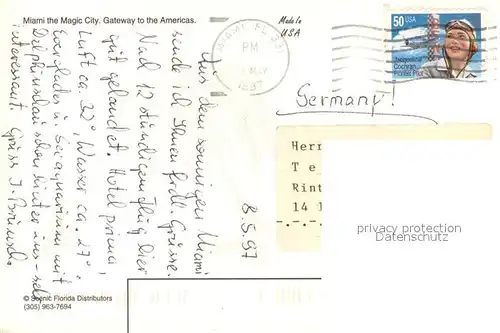 Miami the Magic City. Gateway to the Americas.
Made in
USA
MIAMI FL 331
PM
MAY
1997
50 USA
Jacqueline
Cochran
Pioneer Pilot
Germany!
Herr
Te
Rint
14 1
privacy protection
Datenschutz
8.5.97
Aus dem sonnigen Miami
sende ich Ihnen frdl. Grüsse.
Nach 12 stündigem Flug hier
gut gelandet. Hotel prima,
Luft ca. 32°, Wasser ca. 27°.
Everglades u. Seaquarium mit
Delphinschau schon hinter uns - sehr
interessant. Gruss J.
© Scenic Florida Distributors
(305) 963-7694